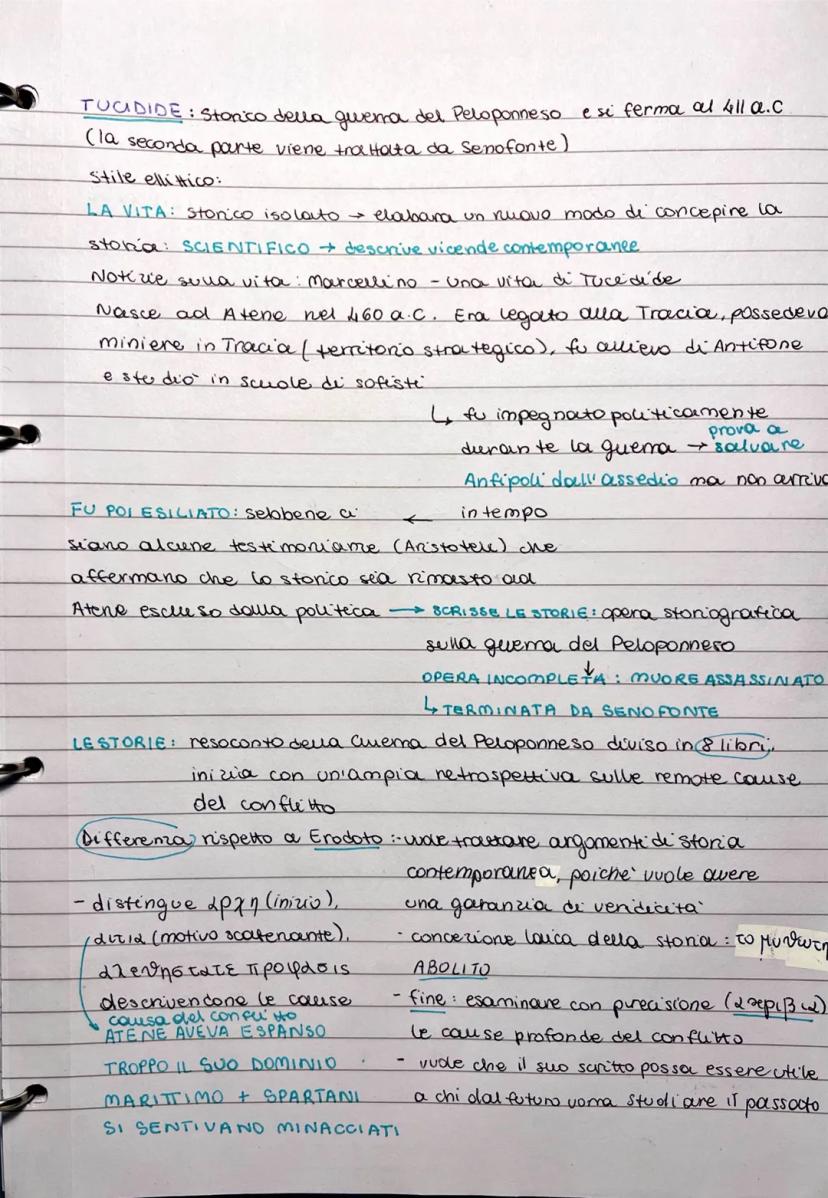 TUCIDIDE : Storico della guerra del Peloponneso e si ferma al 411 a.C
(la seconda parte viene trattata da Senofonte)
Stile ellittico:
LA VITA: storico isolato → elabora un nuovo modo di concepire la
storia: SCIENTIFICO → descrive vicende contemporanee
Notizie sulla vita: Marcellino - una vita di Tucidide
Nasce ad Atene nel 460 a.C. Era legato alla Tracia, possedeva
miniere in Tracia ( territorio strategico), fu allievo di Antifone
e studiò in scuole di sofisti
↳ fu impegnato politicamente
durante la guerra → prova a salvare
Anfipoli dall'assedio ma non arriva
in tempo
FU POI ESILIATO: sebbene ci ←
siano alcune testimonianze (Aristotele) che
affermano che lo storico sia rimasto ad
Atene escluso dalla politica → SCRISSE LE STORIE: opera storiografica
sulla guerra del Peloponneso
↓
OPERA INCOMPLETA : MUORE ASSASSINATO
↳ TERMINATA DA SENOFONTE
LE STORIE: resoconto della Guerra del Peloponneso diviso in 8 libri,
inizia con un'ampia retrospettiva sulle remote cause
del conflitto
Differenza rispetto a Erodoto :- vuole trattare argomenti di storia
contemporanea, poichè vuole avere
una garanzia di veridicità
- concezione laica della storia : το μυθωτη
ABOLITO
- fine : esaminare con precisione (ακριβω)
le cause profonde del conflitto
- vuole che il suo scritto possa essere utile
a chi dal futuro vorrà studiare il passato
- distingue αρχη (inizio),
αιτια (motivo scatenante),
αλεθηστατε προφασις
descrivendone le cause
causa del conflitto
ATENE AVEVA ESPANSO
TROPPO IL SUO DOMINIO
MARITTIMO + SPARTANI
SI SENTIVANO MINACCIATI